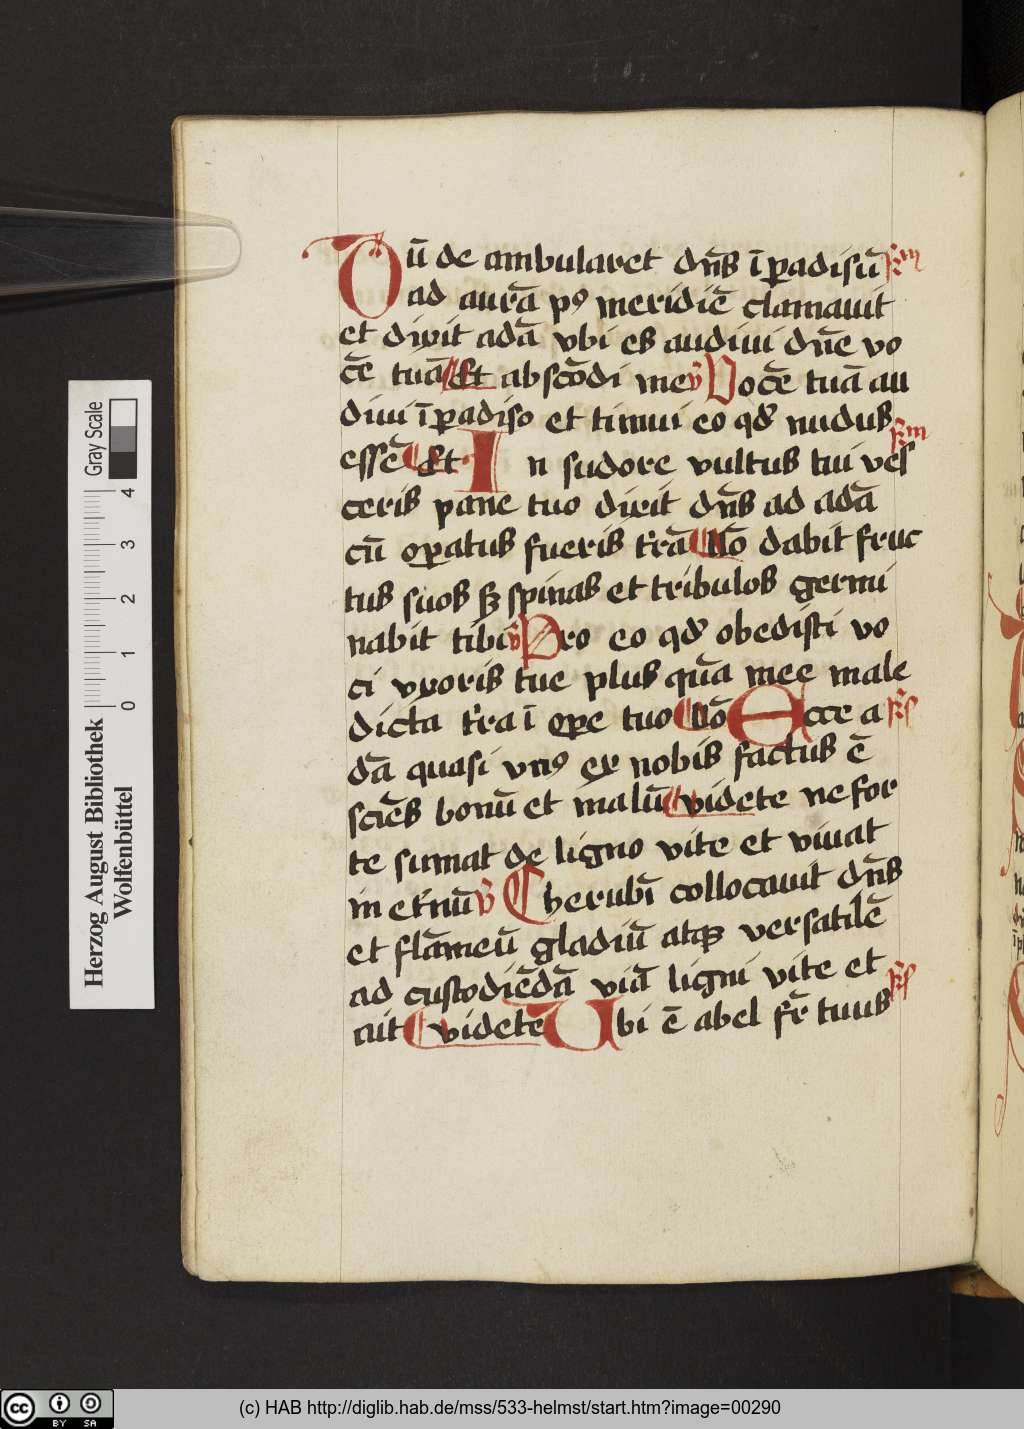 Dū de ambularet dn̄s ī ꝑadisū R̄m
ad aurā pꝰ meridiē clamauit
et dixit adā vbi es audiui dn̄e vo
cē tuā Et abscōdi me v̄ Vocē tuā au
diui ī ꝑadiso et timui eo qd̓ nudus R̄m
essē Et In sudore vultus tui ves
ceris pane tuo dixit dn̄s ad adā
cū oꝑatus fueris tr̄ā Nō dabit fruc
tus suos sꝫ spinas et tribulos germi
nabit tibi v̄ Pro eo qd̓ obedisti vo
ci vxoris tue plus quā mee male
dicta tr̄a ī oꝑe tuo Nō Ecce a R̄s
dā quasi vnꝰ ex nobis factus ē
sciēs bonū et malū videte ne for
te sumat de ligno vite et viuat
in et̓nū v̄ Cherubī collocauit dn̄s
et flāmeū gladiū atqꝫ versatilē
ad custodiēdā viā ligni vite et R̄s
ait videte Vbi ē abel fr̄ tuus
Herzog August Bibliothek
Wolfenbüttel
Gray Scale
0 1 2 3 4
cc BY SA
(c) HAB http://diglib.hab.de/mss/533-helmst/start.htm?image=00290